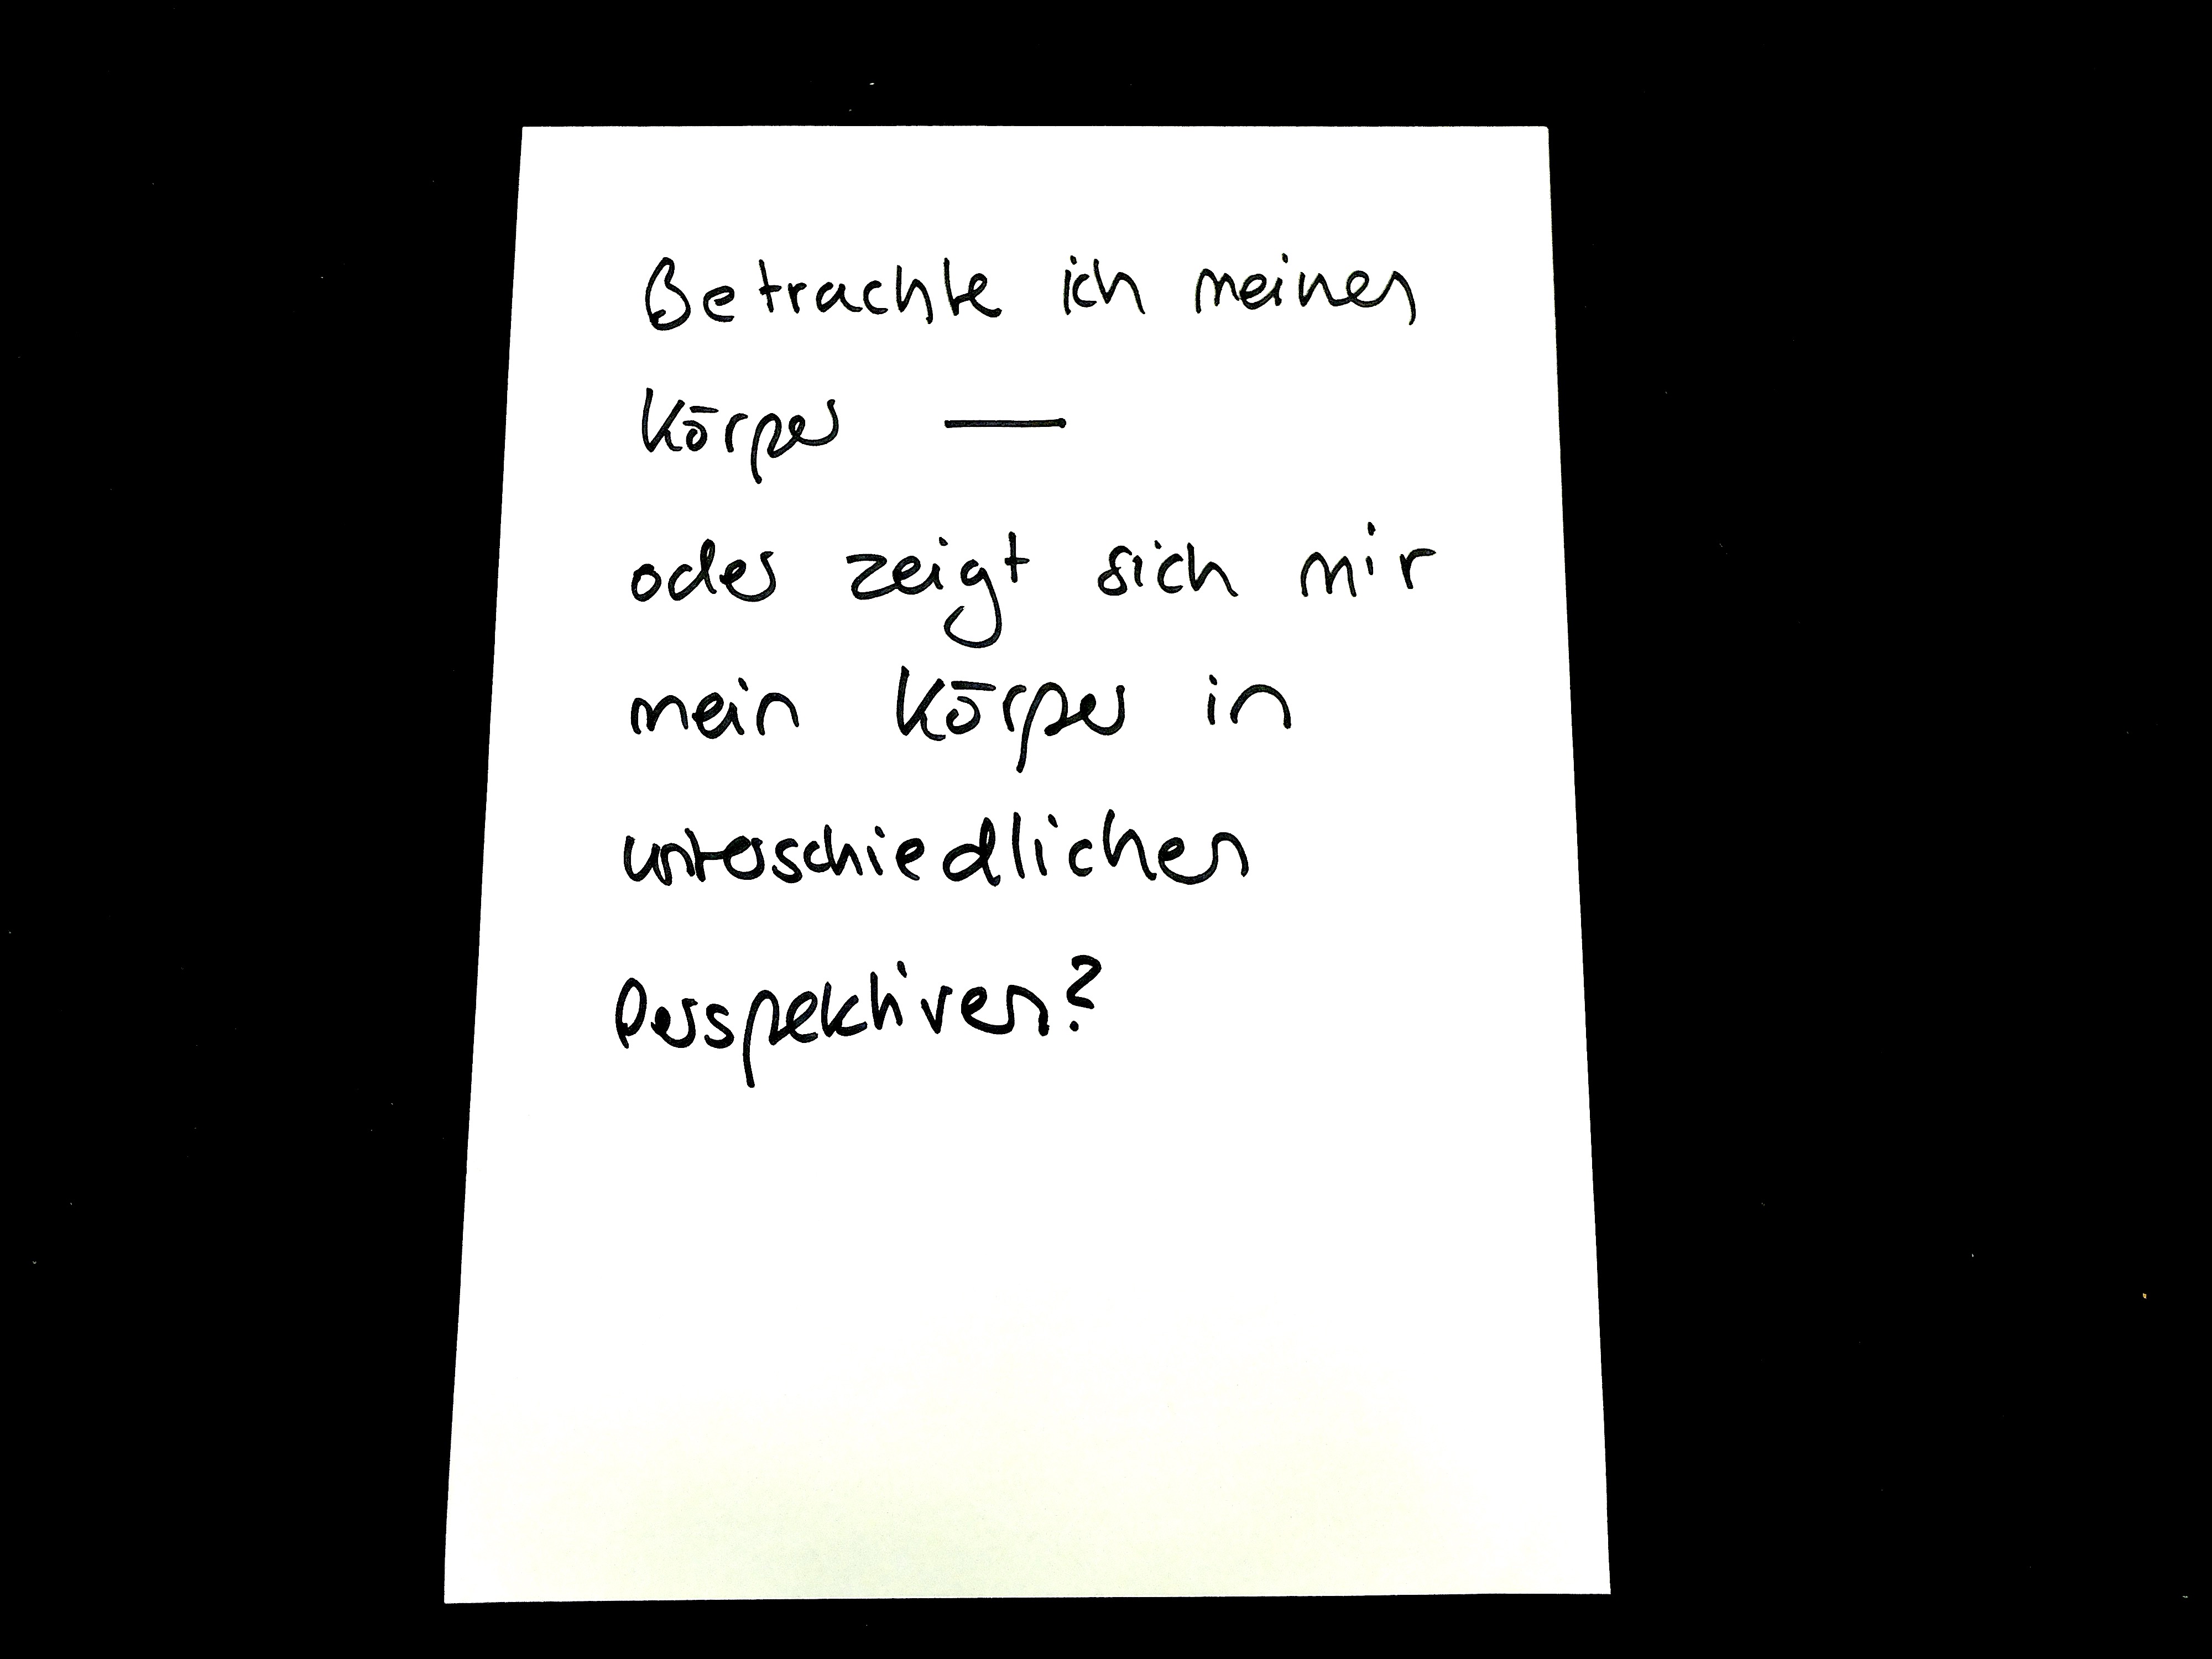 Betrachte ich meinen
Körper —
oder zeigt sich mir
mein Körper in
unterschiedlichen
Perspektiven?